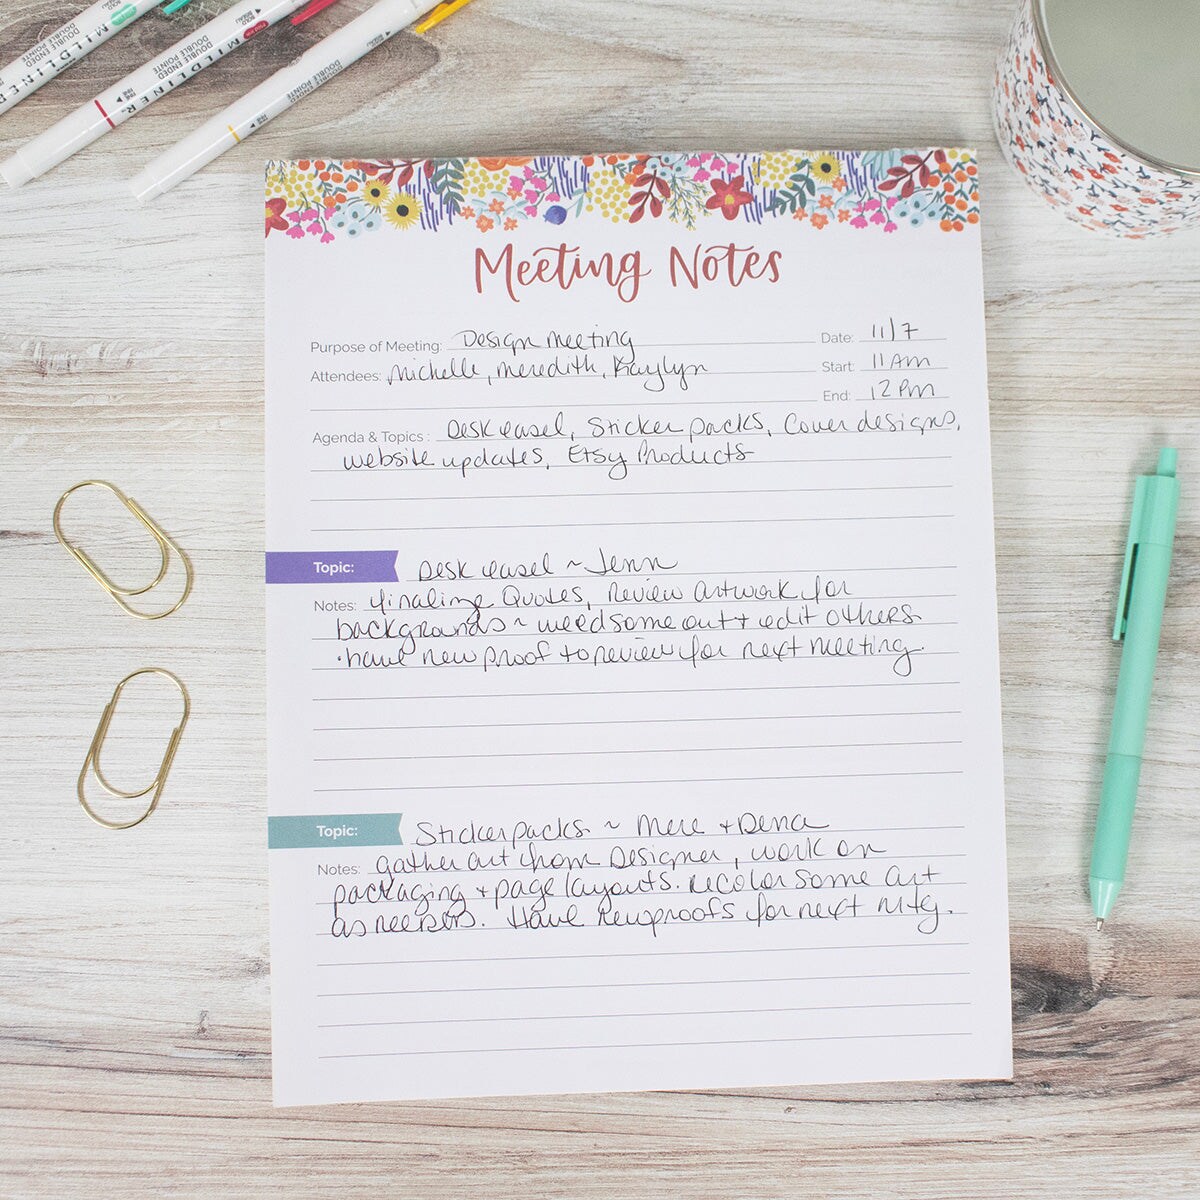 BOLD
BISEAU
DOUBLE ENDED
DOUBLE POINTE
MILDLINER
FINE
BOLD
BISEAU
DOUBLE ENDED
DOUBLE POINTE
MILDLINER
FINE
DOUBLE ENDED
DOUBLE POINTE
Meeting Notes
Purpose of Meeting: Design meeting Date: 11/7
Attendees: Michelle, meredith, Kaylyn Start: 11 Am
End: 12 Pm
Agenda & Topics : Desk easel, Sticker packs, Cover designs,
website updates, Etsy Products
Topic: Desk easel ~ Jenn
Notes: finalize Quotes, review artwork for
backgrounds ~ weed some out + edit others.
• have new proof to review for next meeting.
Topic: Sticker packs ~ Mere + Dena
Notes: gather art from Designer, work on
packaging + page layouts. recolor some art
as needed. Have new proofs for next mtg.